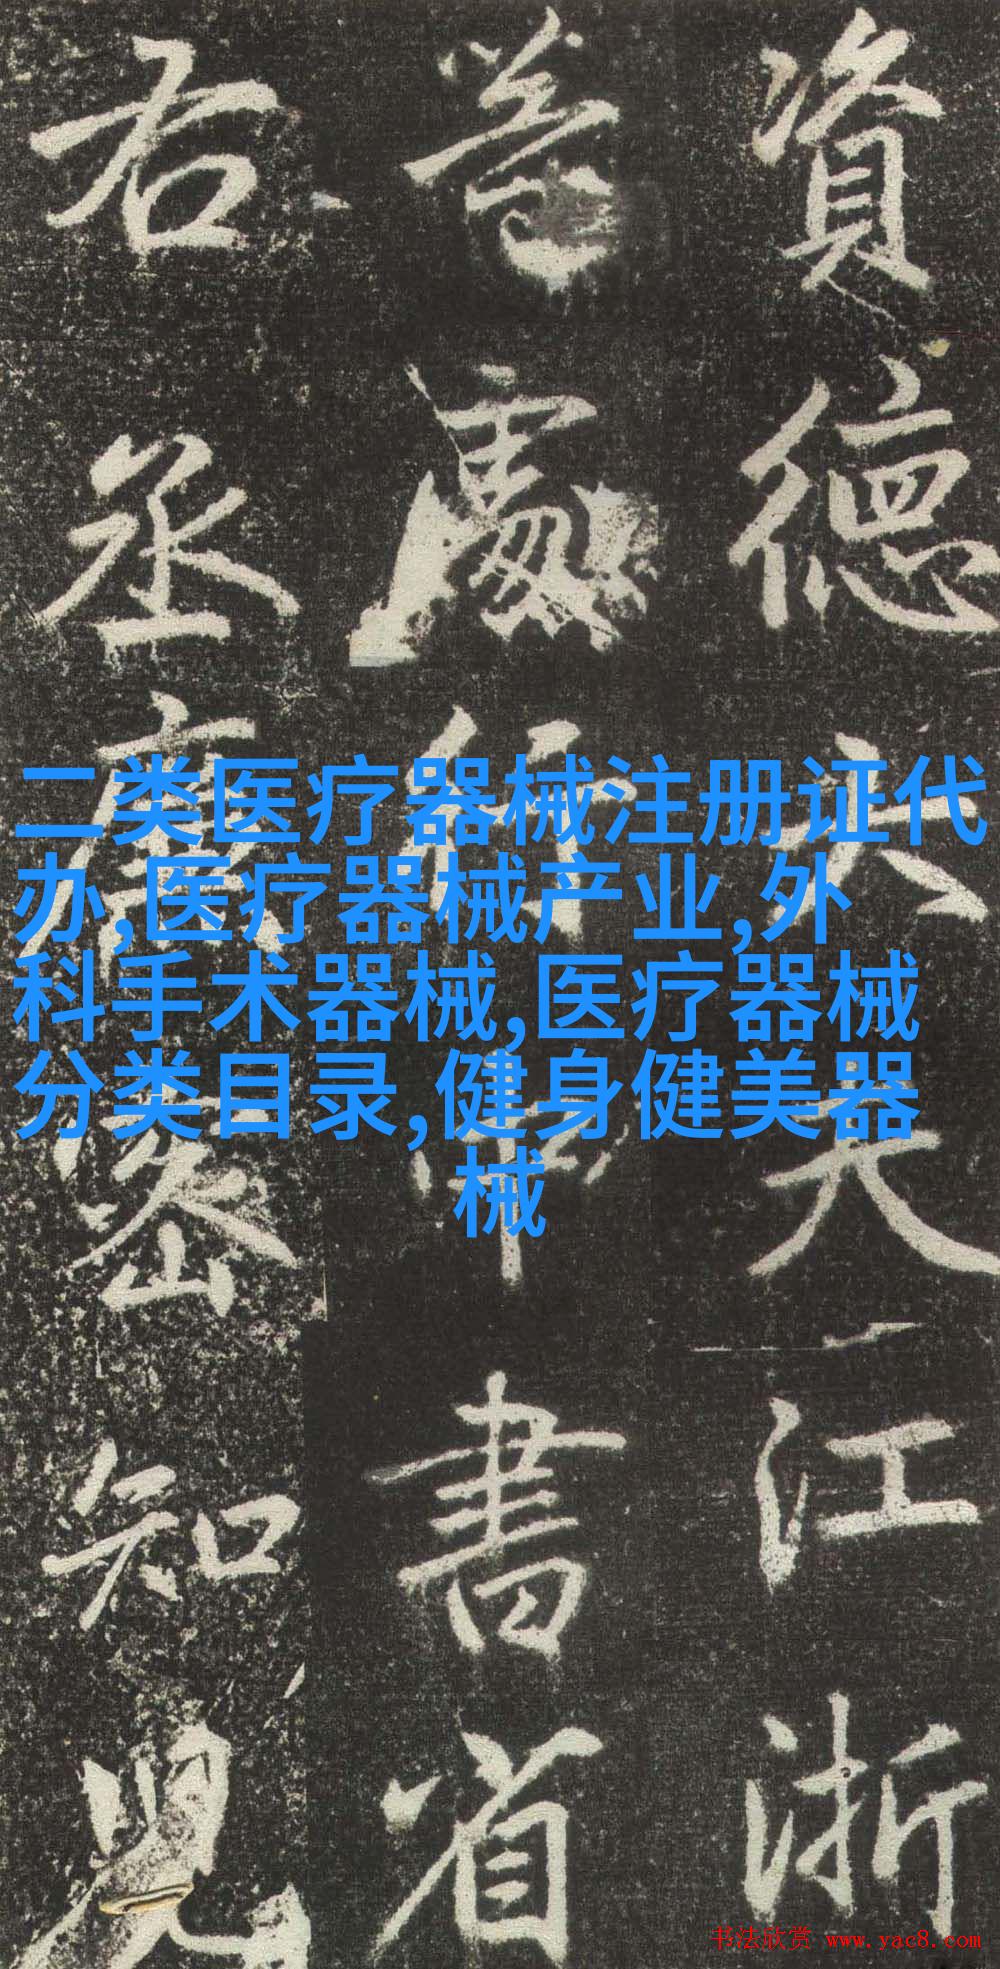 資德大夫江浙
等處行中書省
右丞廉密知兒
二类医疗器械注册证代
办,医疗器械产业,外
科手术器械,医疗器械
分类目录,健身健美器
械
书法欣赏 www.yac8.com